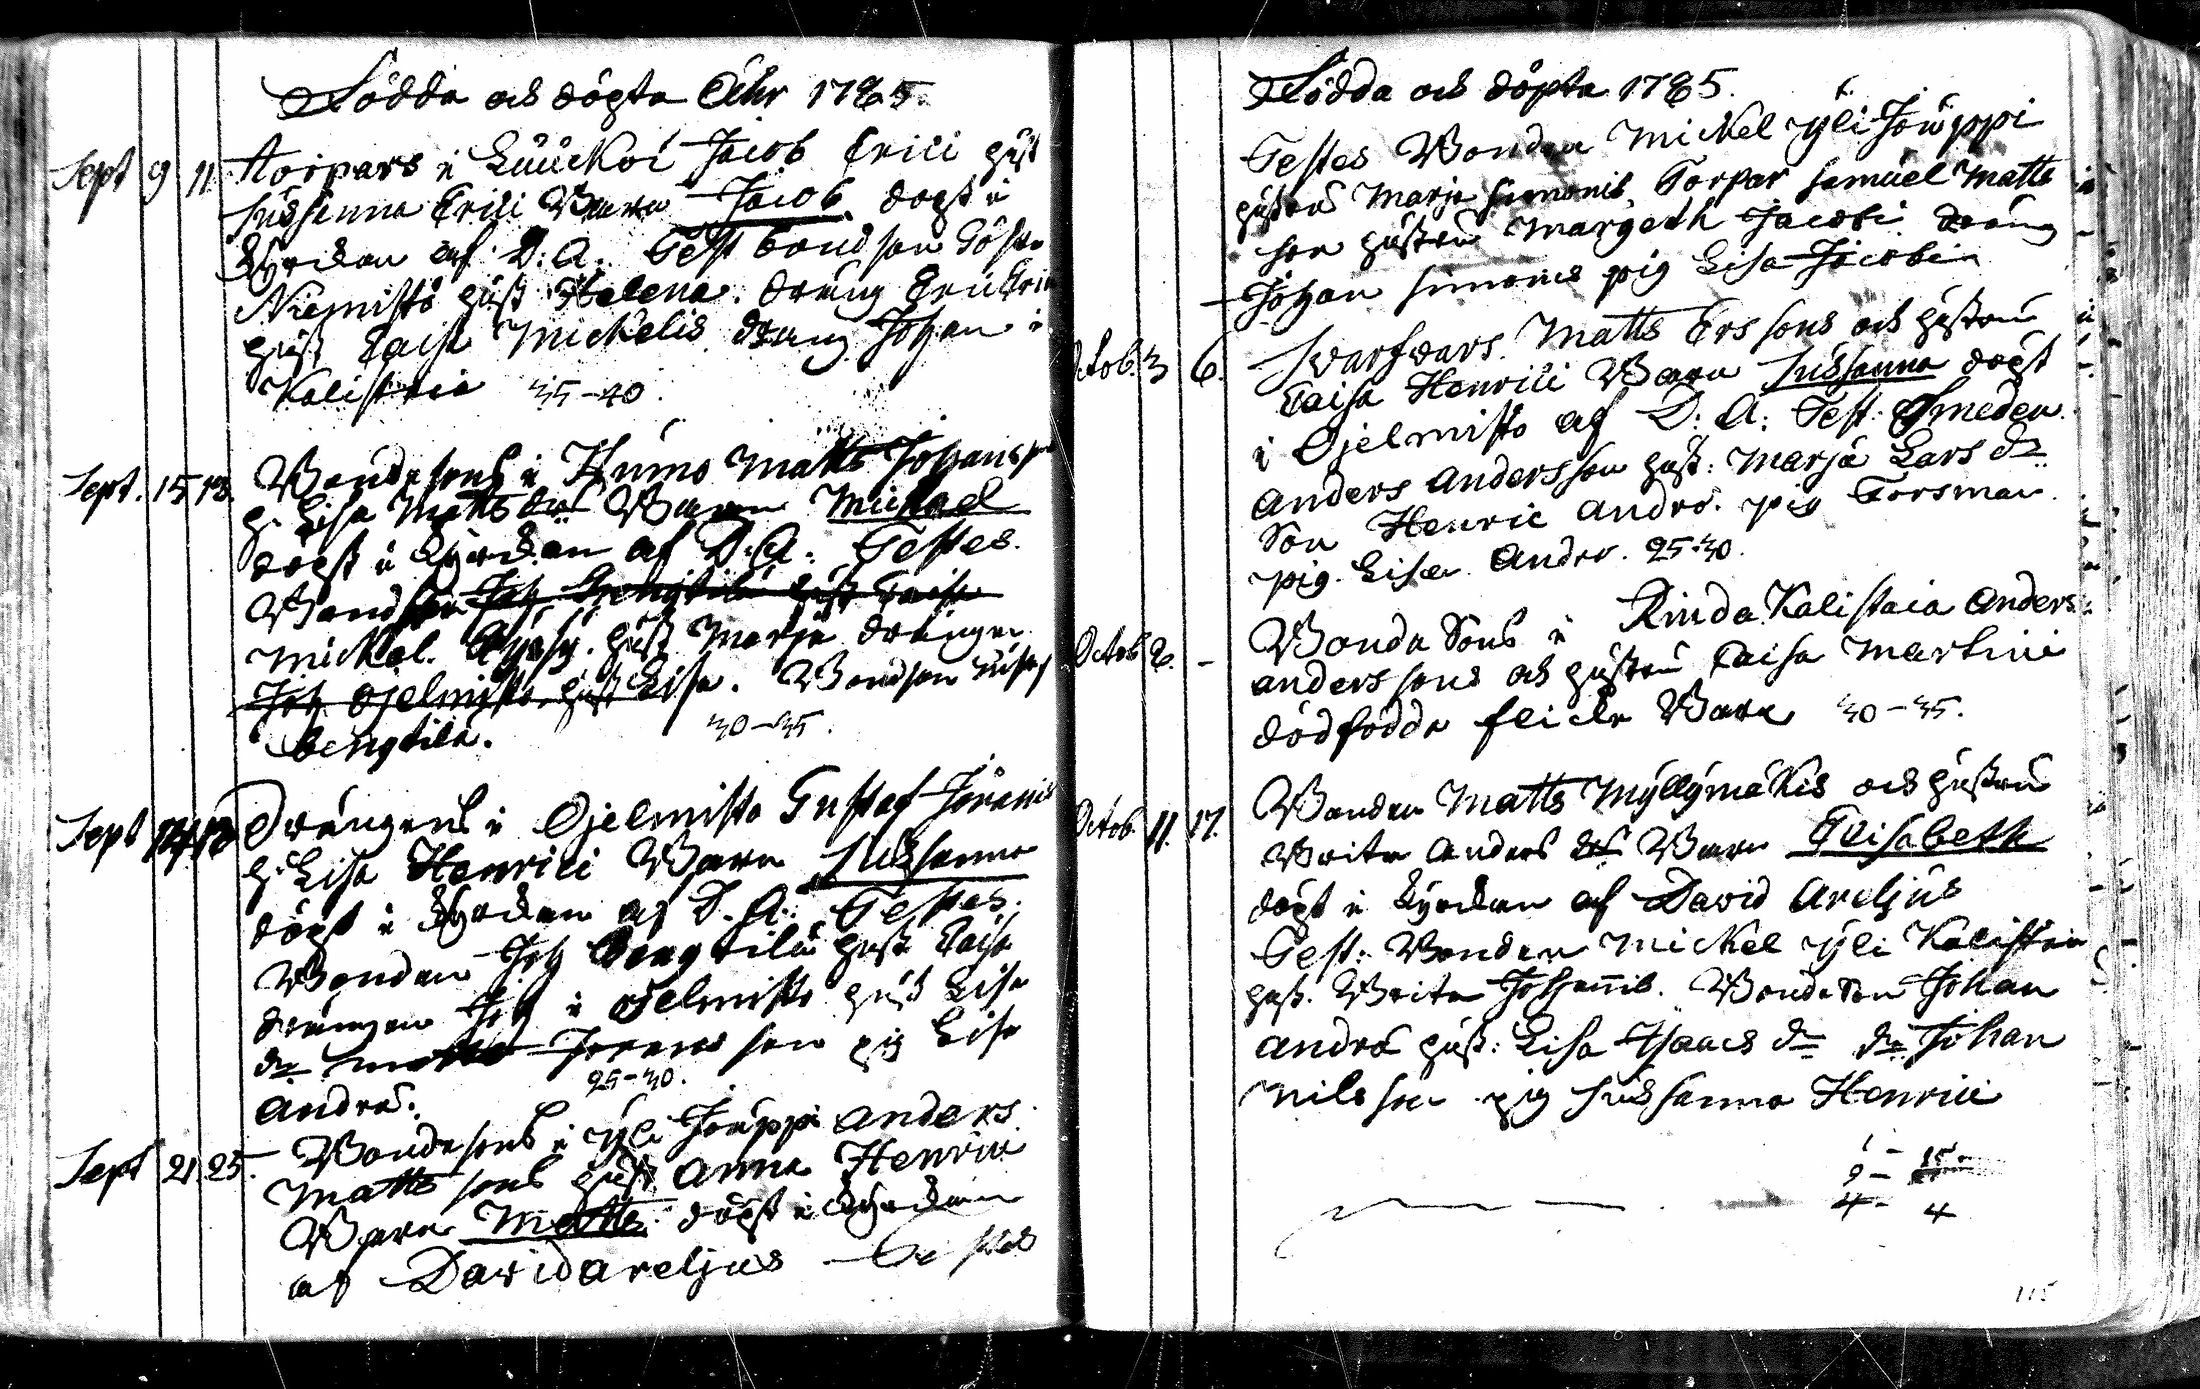 Födda och döpta Åhr 1785.
Sept 9 11 Torpars i Luuckoi Jacob Erici hust
Sussanna Erici Barn Jacob döpt i
Kyrckan af D. A. Test Bondson
Niemisto hust Helena. dräng Eric
hust Caisa Mickelis dräng Johan i
Kalistaia 35-40.
Sept. 15 18. Bondesons i Matts Johansson
h. Lisa Matts dr Barn Michael
döpt i Kyrckan af D. A. Testes.
Bond Joh Bengtilä hust Caisa
Mickel. hust Marja drängen
Joh Ojelmisto, hust Lisa. Bondson
Bengtilä. 30-35.
Sept 18 Drängens i Ojelmisto Gustaf
h. Lisa Henrici Barn Sussanna
döpt i Kyrckan af D. A. Testes.
Bonden Joh Bengtilä hust Caisa
drängen Joh i Ojelmisto hust Lisa
dr Matts son pig Lisa
Andrs. 25-30.
Sept 21 25. Bondesons i Yli Jouppi Anders
Mattssons hust Anna Henrici
Barn Matts döpt i Kyrckan
af David Areljus
Födda och döpta 1785.
Testes Bonden Mickel Yli Jouppi
hustru Marja Simonis, Torpar Samuel Matts
son hustru Margeth Jacobi. dräng
Johan Simonis pig Lisa Jacobi
Octob. 3 6. Svarfvars Matts Erssons och hustru
Caisa Henrici Barn Sussanna döpt
i Ojelmisto af D. A. Test: Smeden
Anders Andersson hust: Marja Lars dr
Son Henric Andrs. pig Forsman
pig Lisa Andrs. 25-30.
Octob 2. - Bonda Sons i Rinda Kalistaia Anders
Anderssons och hustru Caisa Martini
dödfödde flicke Barn 30-35.
Octob 11. 17. Bonden Matts Myllymäkis och hustru
Brita Anders dr Barn Elisabeth
döpt i Kyrckan af David Areljus
Test: Bonden Mickel Yli Kalistaia
hust. Brita Johannis. Bondeson Johan
Andrs hust: Lisa Isaacs dr dr Johan
Nilsson pig Sussanna Henrici
1 - 15
9 -
4 - 4
115